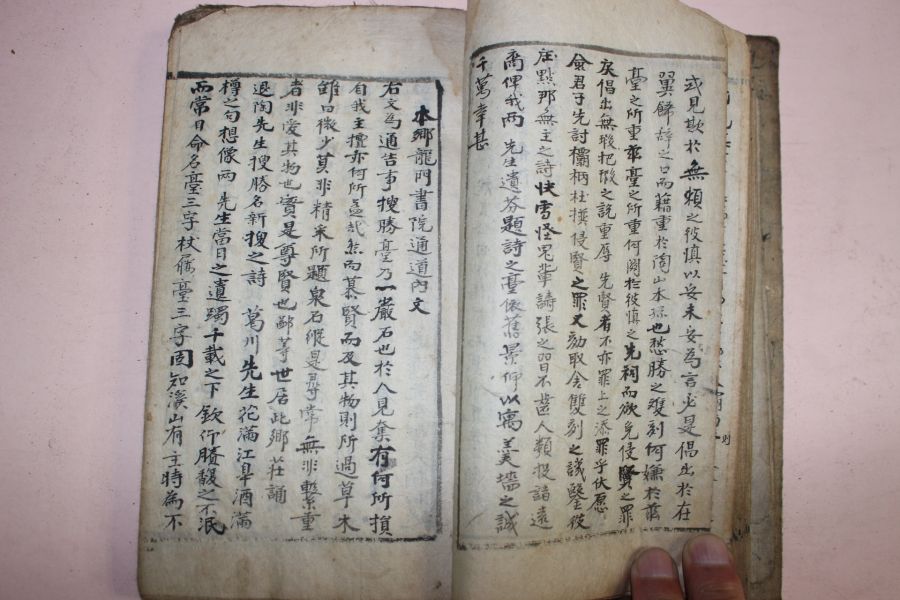 或見欺於無賴之彼愼以妄未妄爲言必是倡出於在
翼歸辭之口而籍重於陶山本孫也愁勝之雙刻何嫌於齋
臺之所重乖臺之所重何關於彼愼之先祠而欲免侵賢之罪
戾倡出無瑕把瑕之說重辱 先賢者不亦罪上之添罪乎伏愿
僉君子先討欛柄杜撰侵賢之罪又劾取舍雙刻之譏鑒彼
庄點那無主之詩快雪怪鬼輩譸張之習日不齒人類投諸遠
裔俾我兩 先生遺芬題詩之臺依舊景仰以寓羹墻之誠
千萬幸甚
本鄕龍門書院通道內文
右文爲通告事搜勝臺乃一巖石也於人見奪有何所損
自我主擅亦何所益哉然而慕賢而及其物則所過草木
雖曰微少莫非精采所題泉石縱是尋常無非繫重
者非愛其物也實是尊賢也鄙等世居此鄕莊誦
退陶先生搜勝名新搜之詩 葛川先生花滿江皐酒滿
樽之句想像兩 先生當日之遺躅千載之下欽仰賸馥之不泯
而常日命名臺三字杖屨臺三字固知溪山有主時爲不